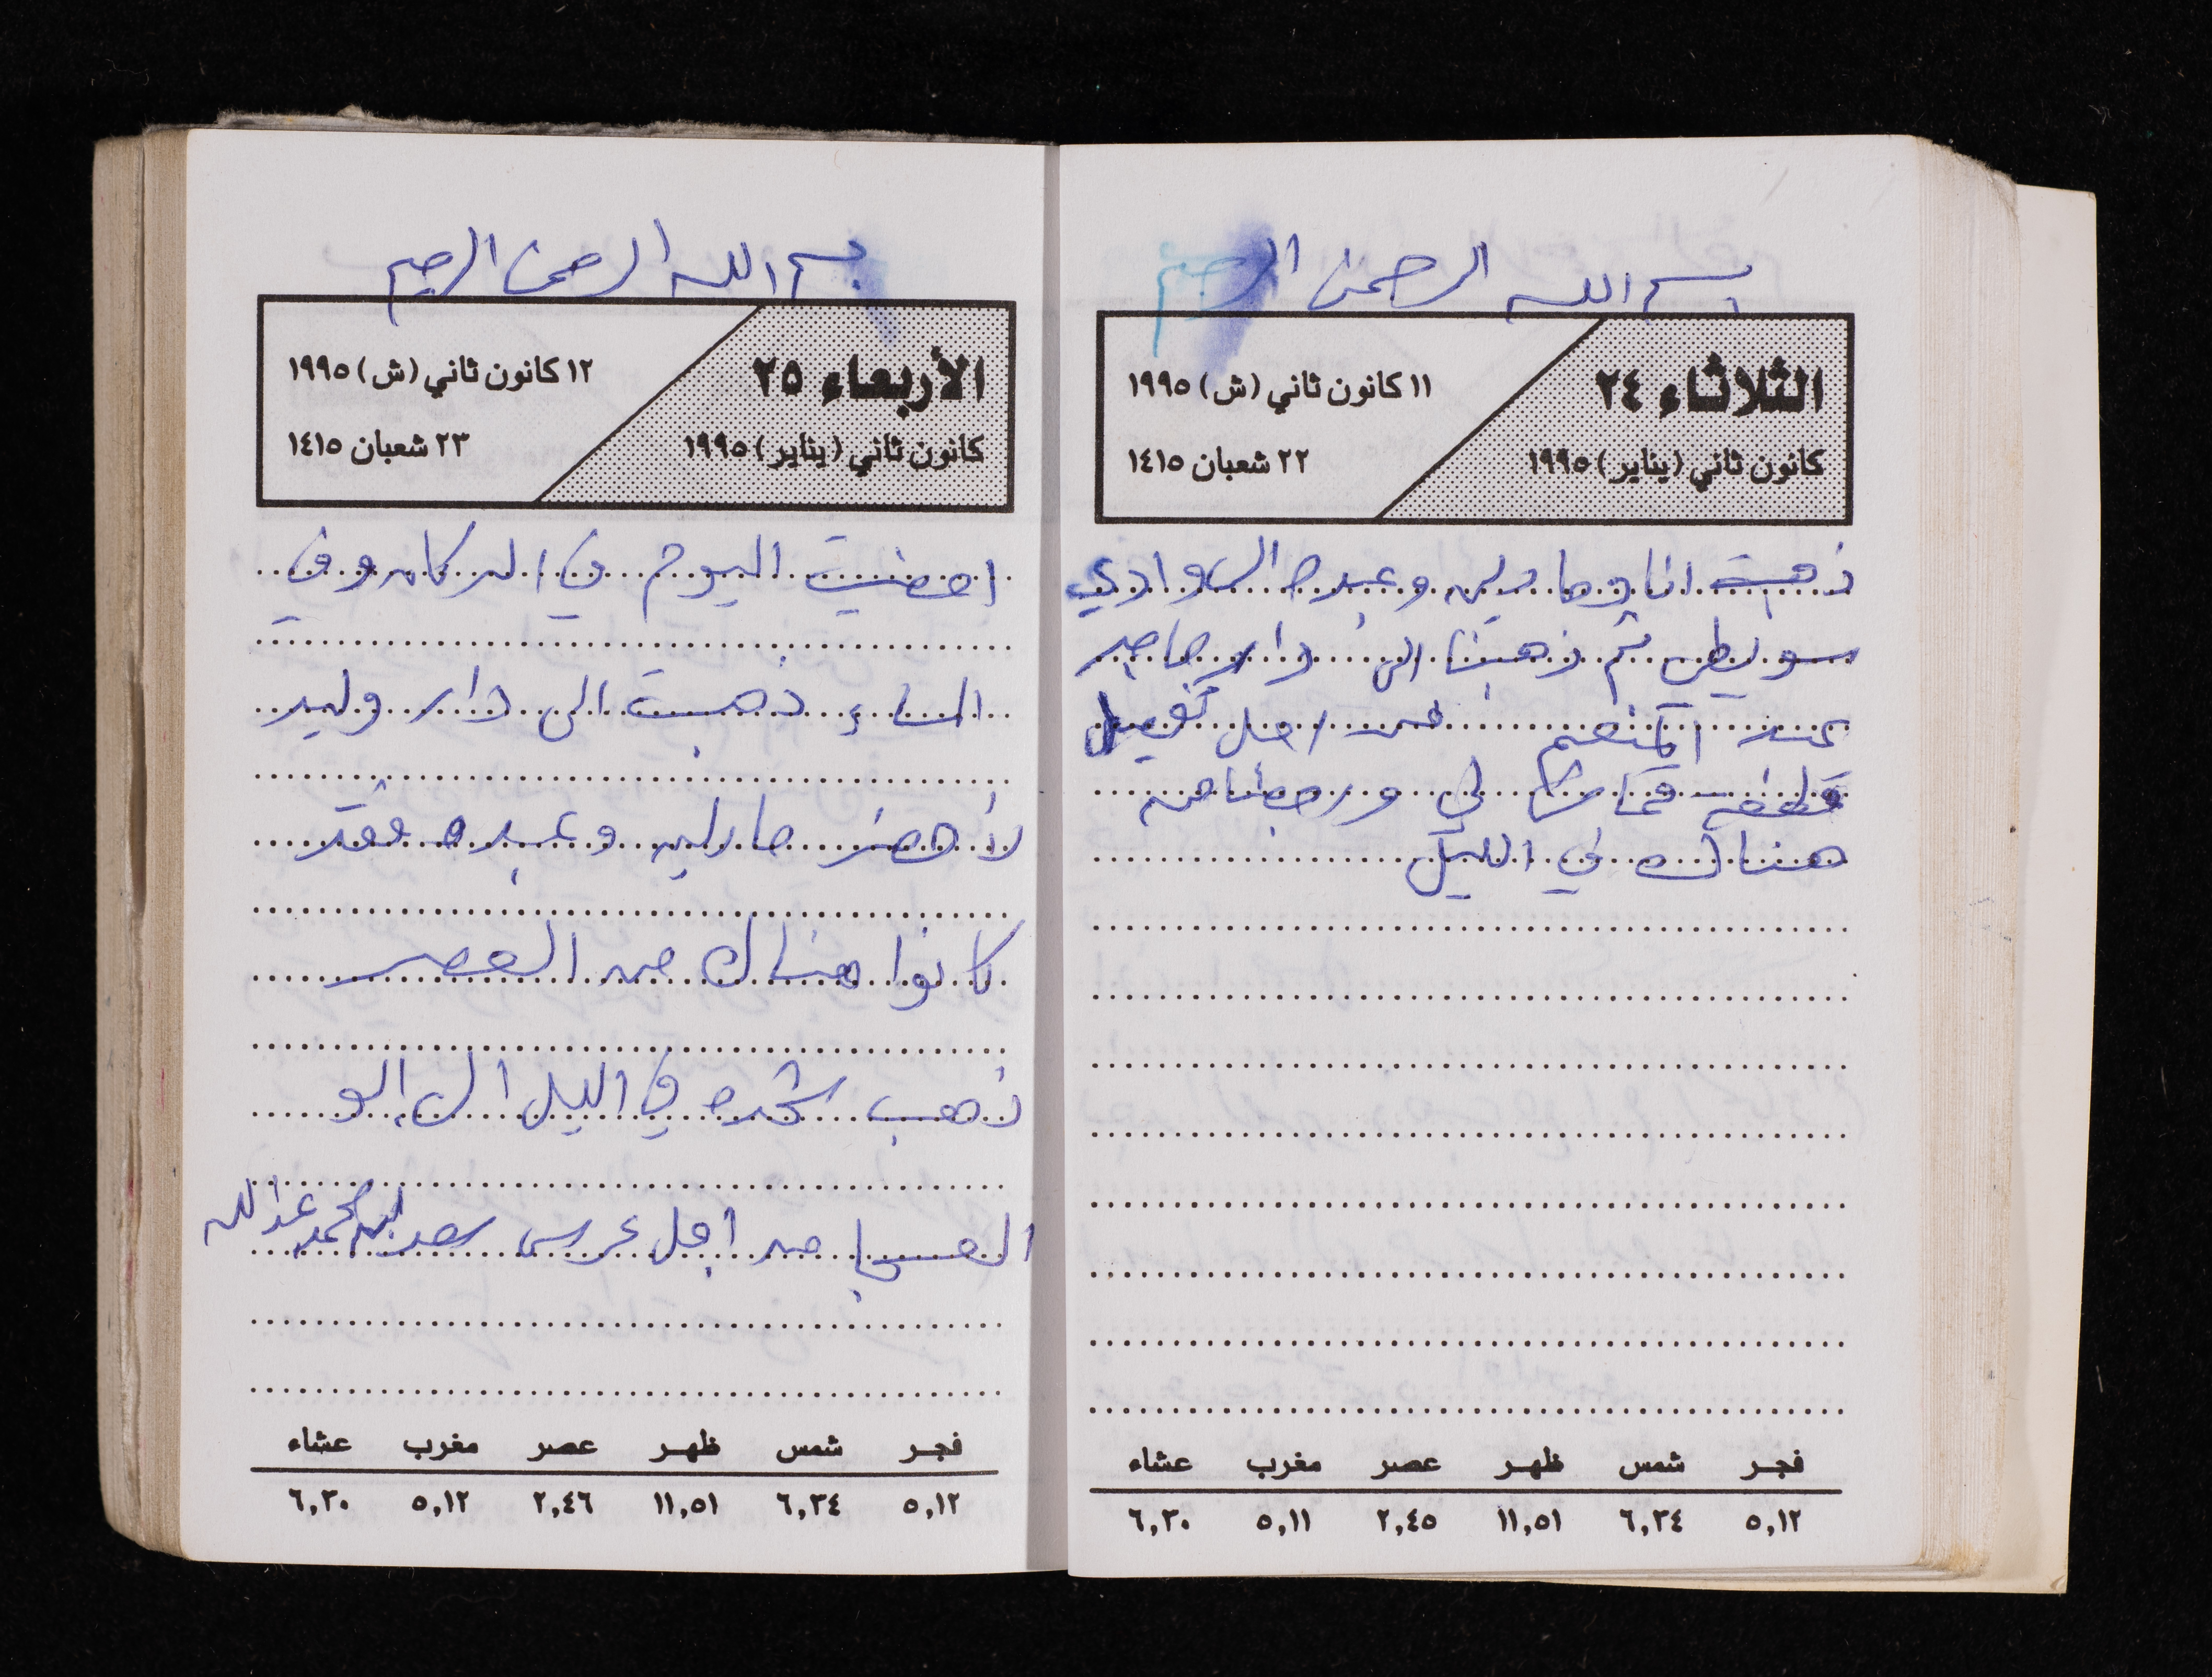 بسم الله الرحمن الرحيم
الثلاثاء ٢٤
كانون ثاني (يناير) ١٩٩٥
١١ كانون ثاني (ش) ١٩٩٥
٢٢ شعبان ١٤١٥
ذهبت انا ومارلين وعبده الى وادي
سويطي ثم ذهبنا الى دار ماجد
عبد المنعم من اجل تفصيل
قطعة قماش لي ورجعنا من
هناك في الليل
فجر شمس ظهر عصر مغرب عشاء
٥,١٢ ٦,٣٤ ١١,٥١ ٢,٤٥ ٥,١١ ٦,٣٠
بسم الله الرحمن الرحيم
الأربعاء ٢٥
كانون ثاني (يناير) ١٩٩٥
١٢ كانون ثاني (ش) ١٩٩٥
٢٣ شعبان ١٤١٥
امضيت اليوم في الدكان وفي
المساء ذهبت الى دار وليد
لأحضر مارلين وعبده فقد
كانوا هناك من العصر
ذهب شحده في الليل الى ابو
العسجا من اجل عرس سعد ابن محمد عبدالله
فجر شمس ظهر عصر مغرب عشاء
٥,١٢ ٦,٣٤ ١١,٥١ ٢,٤٦ ٥,١٢ ٦,٣٠